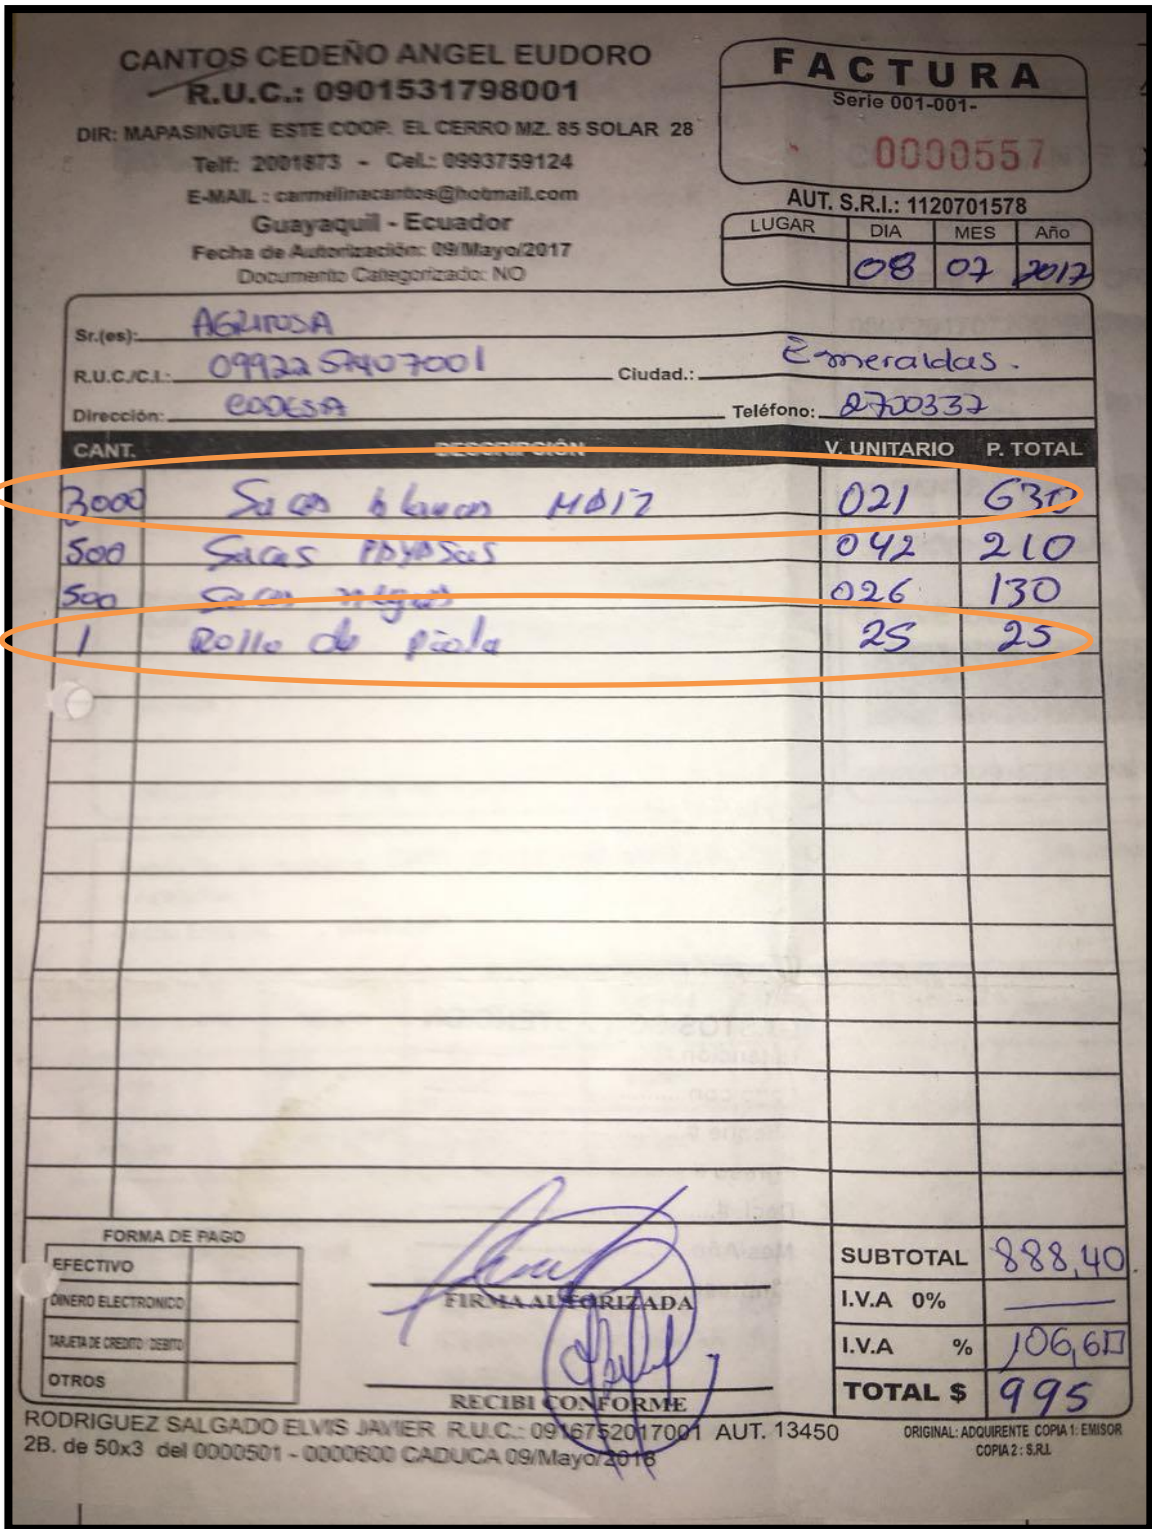 CANTOS CEDEÑO ANGEL EUDORO
R.U.C.: 0901531798001
DIR: MAPASINGUE ESTE COOP. EL CERRO MZ. 85 SOLAR 28
Telf: 2001873 - Cel.: 0993759124
E-MAIL : carmelinacantos@hotmail.com
Guayaquil - Ecuador
Fecha de Autorización: 09/Mayo/2017
Documento Categorizado: NO
FACTURA
Serie 001-001-
0000557
AUT. S.R.I.: 1120701578
LUGAR DIA MES Año
08 07 2017
Sr.(es): AGRITOSA
R.U.C./C.I.: 0992257407001 Ciudad.: Esmeraldas.
Dirección: CODESA Teléfono: 2700337
CANT. DESCRIPCIÓN V. UNITARIO P. TOTAL
3000 Sacos blancos MAIZ 021 630
500 Sacas PAYASAS 042 210
500 Sacas negras 026 130
1 Rollo de piola 25 25
FORMA DE PAGO
EFECTIVO
DINERO ELECTRONICO
TARJETA DE CREDITO / DEBITO
OTROS
FIRMA AUTORIZADA
RECIBI CONFORME
SUBTOTAL 888,40
I.V.A 0% —
I.V.A % 106,60
TOTAL $ 995
RODRIGUEZ SALGADO ELVIS JAVIER R.U.C.: 0916752017001 AUT. 13450
2B. de 50x3 del 0000501 - 0000600 CADUCA 09/Mayo/2018
ORIGINAL: ADQUIRENTE COPIA 1: EMISOR
COPIA 2 : S.R.I.